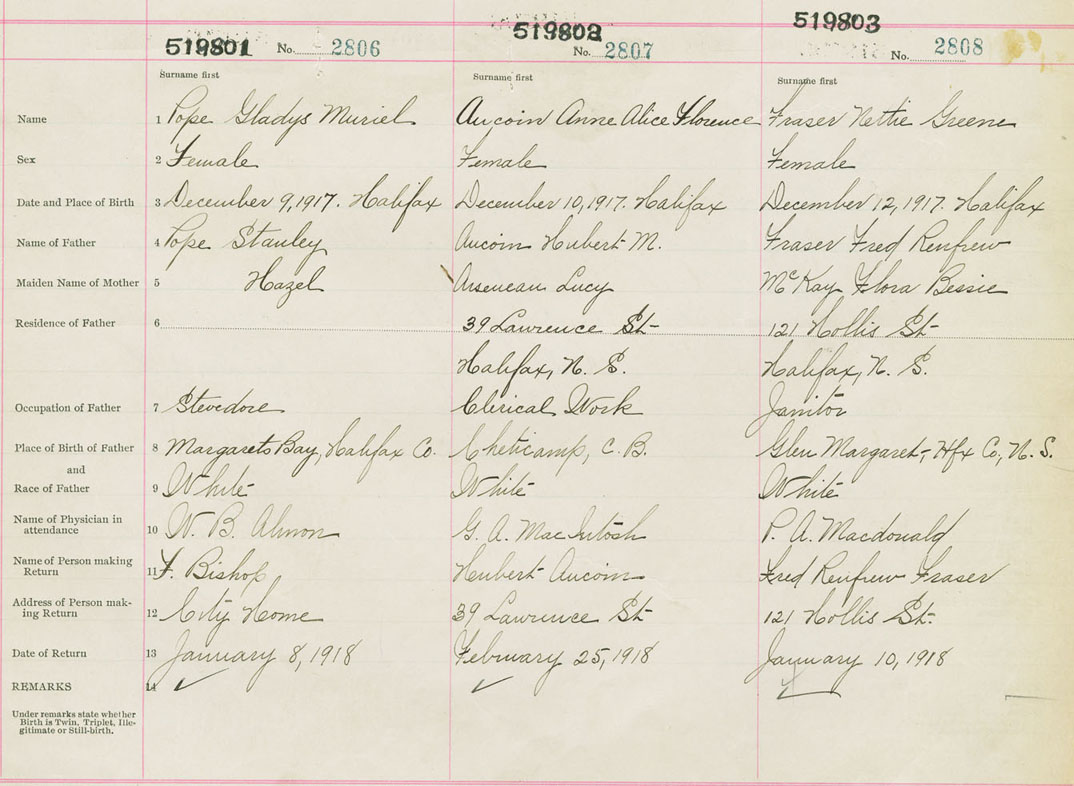 519801 No. 2806 519802 No. 2807 519803 No. 2808
Surname first Surname first Surname first
Name 1 Pope Gladys Muriel Aucoin Anne Alice Florence Fraser Nettie Greene
Sex 2 Female Female Female
Date and Place of Birth 3 December 9, 1917. Halifax December 10, 1917. Halifax December 12, 1917. Halifax
Name of Father 4 Pope Stanley Aucoin Hubert M. Fraser Fred Renfrew
Maiden Name of Mother 5 Hazel Arseneau Lucy McKay Flora Bessie
Residence of Father 6 39 Lawrence St 121 Hollis St
Halifax, N. S. Halifax, N. S.
Occupation of Father 7 Stevedore Clerical Work Janitor
Place of Birth of Father 8 Margarets Bay, Halifax Co. Cheticamp, C. B. Glen Margaret, Hfx Co, N. S.
and
Race of Father 9 White White White
Name of Physician in
attendance 10 W. B. Almon G. A. MacIntosh P. A. Macdonald
Name of Person making
Return 11 F. Bishop Hubert Aucoin Fred Renfrew Fraser
Address of Person mak-
ing Return 12 City Home 39 Lawrence St 121 Hollis St.
Date of Return 13 January 8, 1918 February 25, 1918 January 10, 1918
REMARKS 14
Under remarks state whether
Birth is Twin, Triplet, Ille-
gitimate or Still-birth.